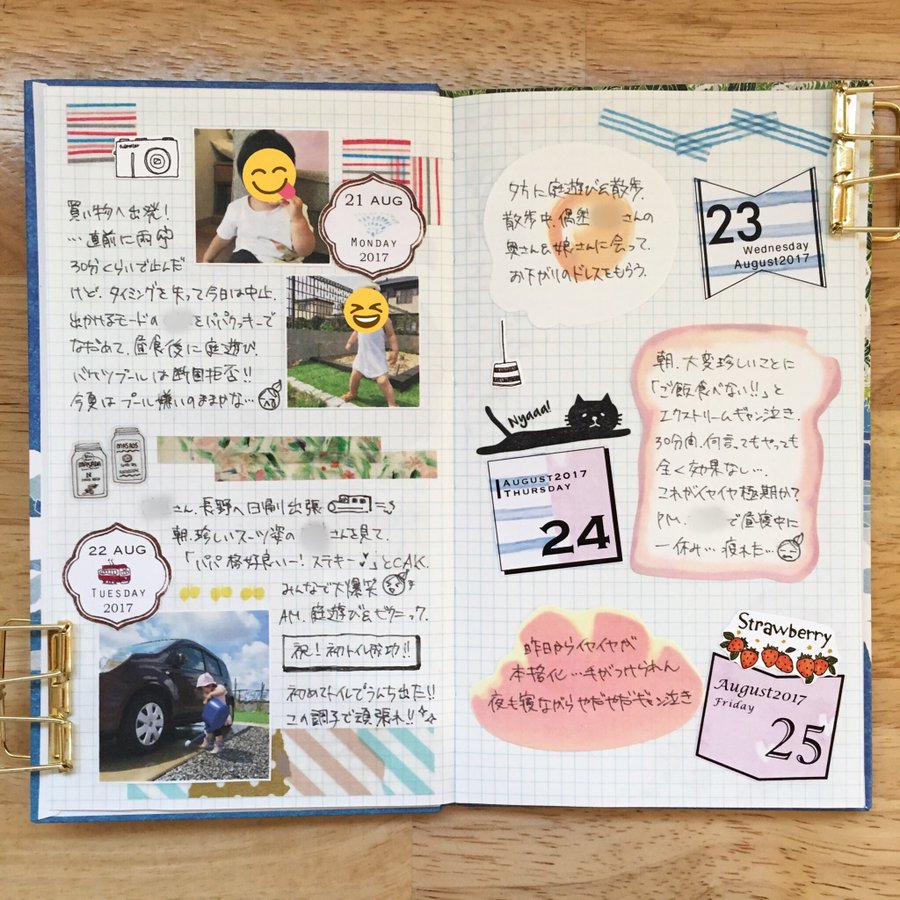 21 AUG
MONDAY
2017
買い物へ出発！
…直前に雨
30分くらいで止んだ
けど、タイミングを失って今日は中止。
出かけるモードの をパパクッキーで
なだめて、昼食後に庭遊び。
バケツプールは断固拒否!!
今夏はプール嫌いのままかな…
MASADA
MASAOS
さん、長野へ日帰り出張
朝、珍しいスーツ姿の さんを見て、
「パパ格好良いー！ステキー♪」とC.A.K.
みんなで大爆笑
AM、庭遊び&ピクニック。
祝！初トイレ成功!!
初めてトイレでうんち出た!!
この調子で頑張れ!!
22 AUG
TUESDAY
2017
夕方に庭遊び&散歩。
散歩中、偶然 さんの
奥さん&娘さんに会って、
お下がりのドレスをもらう。
23
Wednesday
August2017
Nyaaa!
AUGUST2017
THURSDAY
24
朝、大変珍しいことに
「ご飯食べない!!」と
エクストリームギャン泣き
30分間、何言ってもやっても
全く効果ない…。
これがイヤイヤ極期か？
P.M. で昼寝中に
一休み…疲れた…
昨日からイヤイヤが
本格化…手がつけられん
夜も寝ながらやだやだギャン泣き
Strawberry
August2017
Friday
25